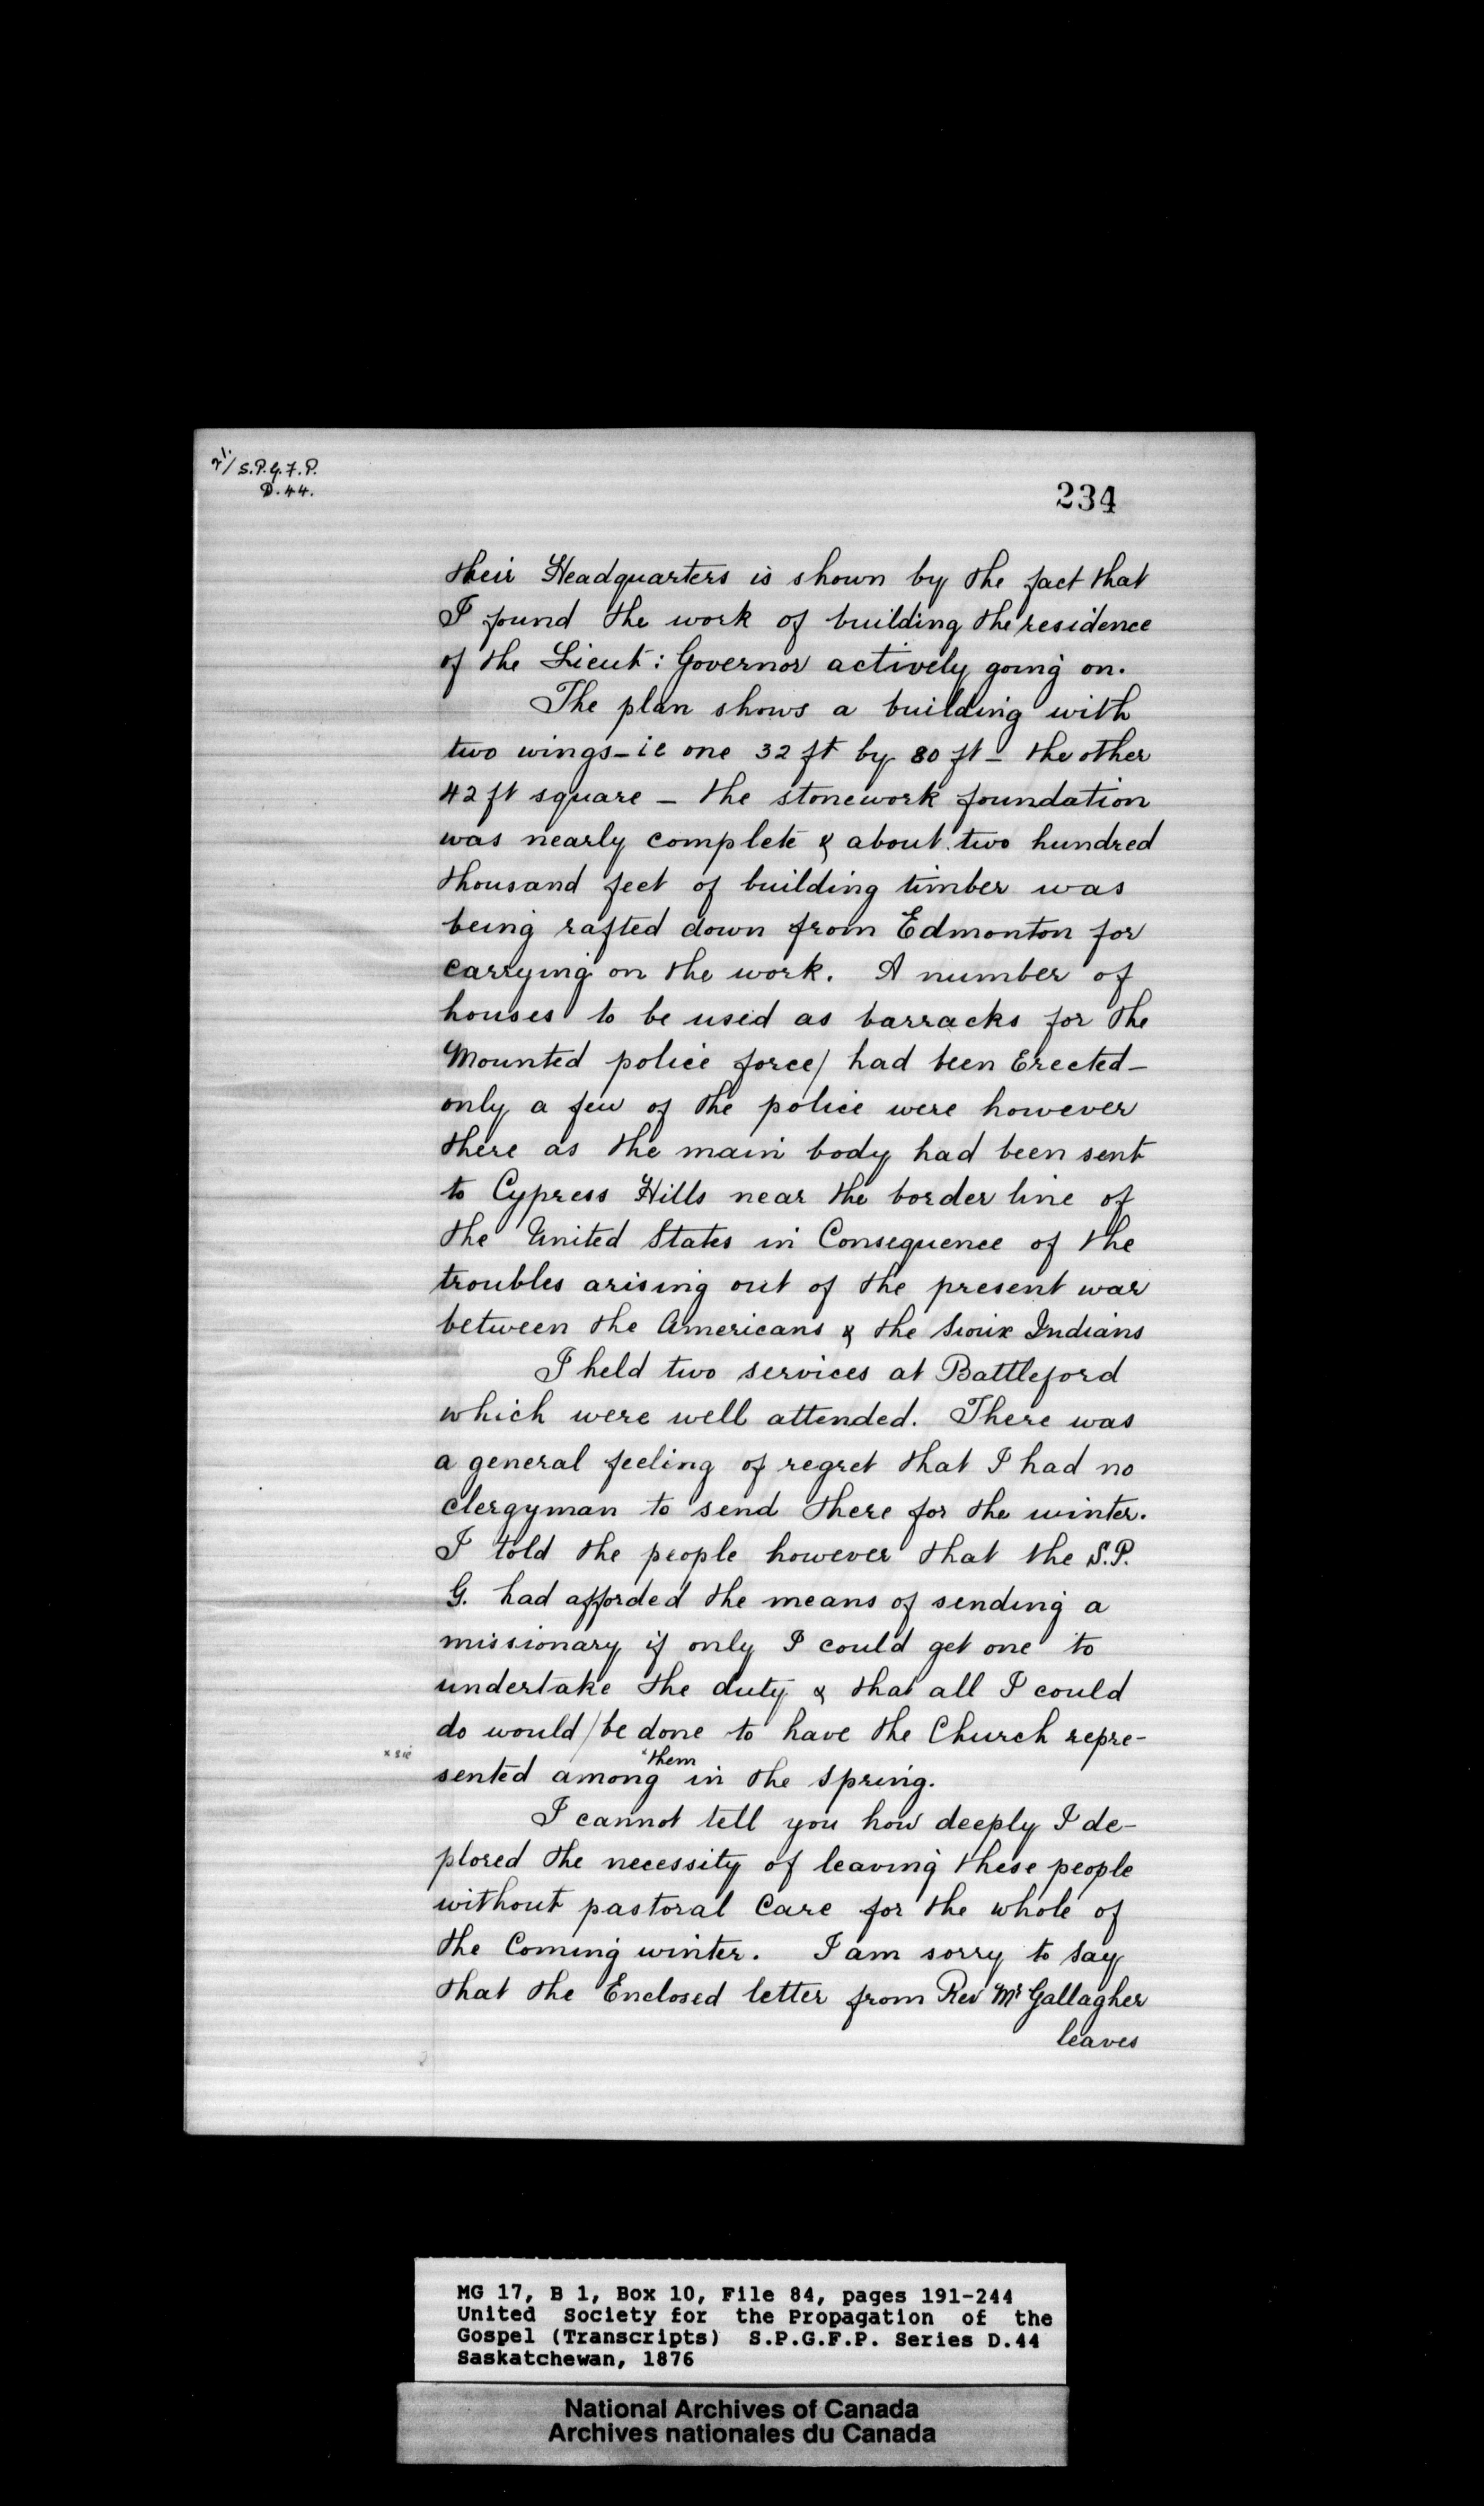 21/S.P.G.F.P.
D.44.
234
their Headquarters is shown by the fact that
I found the work of building the residence
of the Lieut: Governor actively going on.
The plan shows a building with
two wings – ie one 32 ft by 80 ft – the other
42 ft square – the stonework foundation
was nearly complete & about two hundred
thousand feet of building timber was
being rafted down from Edmonton for
carrying on the work. A number of
houses to be used as barracks for the
Mounted police force/ had been Erected –
only a few of the police were however
there as the main body had been sent
to Cypress Hills near the border line of
the United States in Consequence of the
troubles arising out of the present war
between the Americans & the Sioux Indians
I held two services at Battleford
which were well attended. There was
a general feeling of regret that I had no
clergyman to send there for the winter.
I told the people however that the S.P.
G. had afforded the means of sending a
missionary if only I could get one to
undertake the duty & that all I could
do would/be done to have the Church repre-
x sic
x them
sented among in the Spring.
I cannot tell you how deeply I de-
plored the necessity of leaving these people
without pastoral Care for the whole of
the Coming winter. I am sorry to say
that the Enclosed letter from Rev Mr Gallagher
leaves
MG 17, B 1, Box 10, File 84, pages 191-244
United Society for the Propagation of the
Gospel (Transcripts) S.P.G.F.P. Series D.44
Saskatchewan, 1876
National Archives of Canada
Archives nationales du Canada